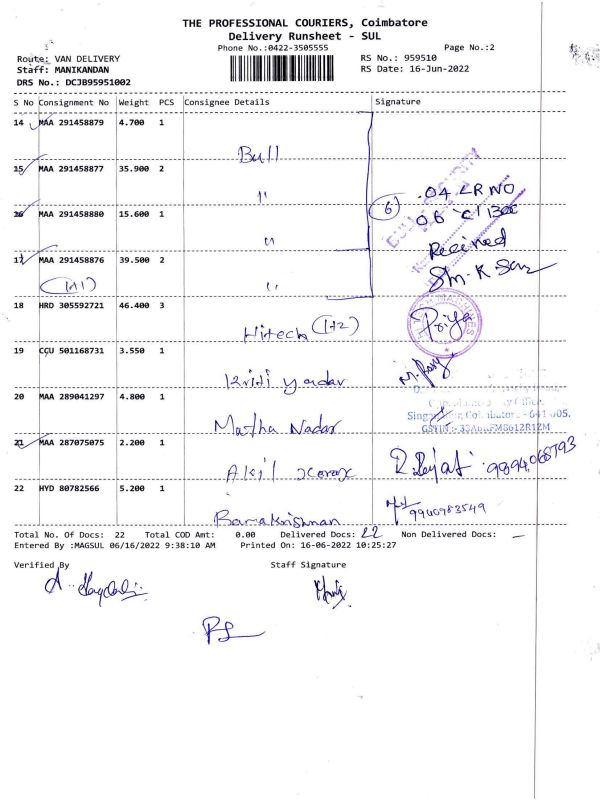 THE PROFESSIONAL COURIERS, Coimbatore
Delivery Runsheet - SUL
Phone No.:0422-3505555 Page No.:2
Route: VAN DELIVERY RS No.: 959510
Staff: MANIKANDAN RS Date: 16-Jun-2022
DRS No.: DCJB95951002
S No Consignment No Weight PCS Consignee Details Signature
14 MAA 291458879 4.700 1
Bull
15 MAA 291458877 35.900 2
" 04 LR NO
16 MAA 291458880 15.600 1 6 06
" Received
17 MAA 291458876 39.500 2
(1+1) "
18 HRD 305592721 46.400 3
Hitech (1+2) Priya
19 CCU 501168731 3.550 1
Kriti yadav
20 MAA 289041297 4.800 1
641 005.
Martha Nadar
21 MAA 287075075 2.200 1
Akil xerox 9894068793
22 HYD 80782566 5.200 1
Barakrishnan 9940983549
Total No. Of Docs: 22 Total COD Amt: 0.00 Delivered Docs: 22 Non Delivered Docs: -
Entered By :MAGSUL 06/16/2022 9:38:10 AM Printed On: 16-06-2022 10:25:27
Verified By Staff Signature